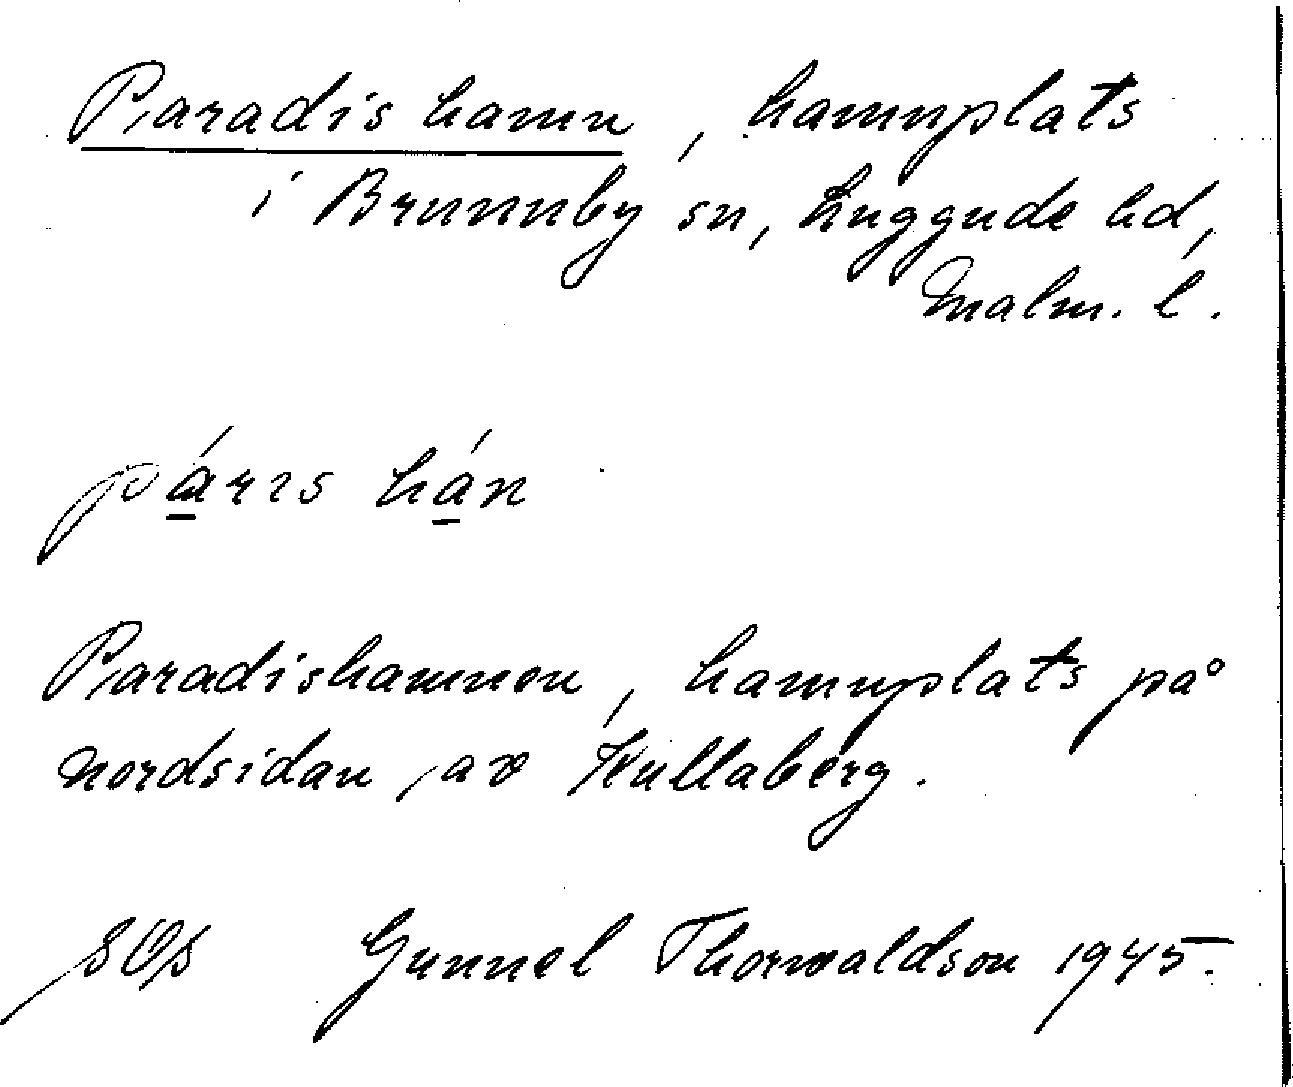 Paradishamn, hamnplats
i Brunnby sn, Luggude hd,
Malm. l.
párıs hán
Paradishamnen, hamnplats på
nordsidan av Kullaberg.
SOS Gunnel Thorwaldson 1945.